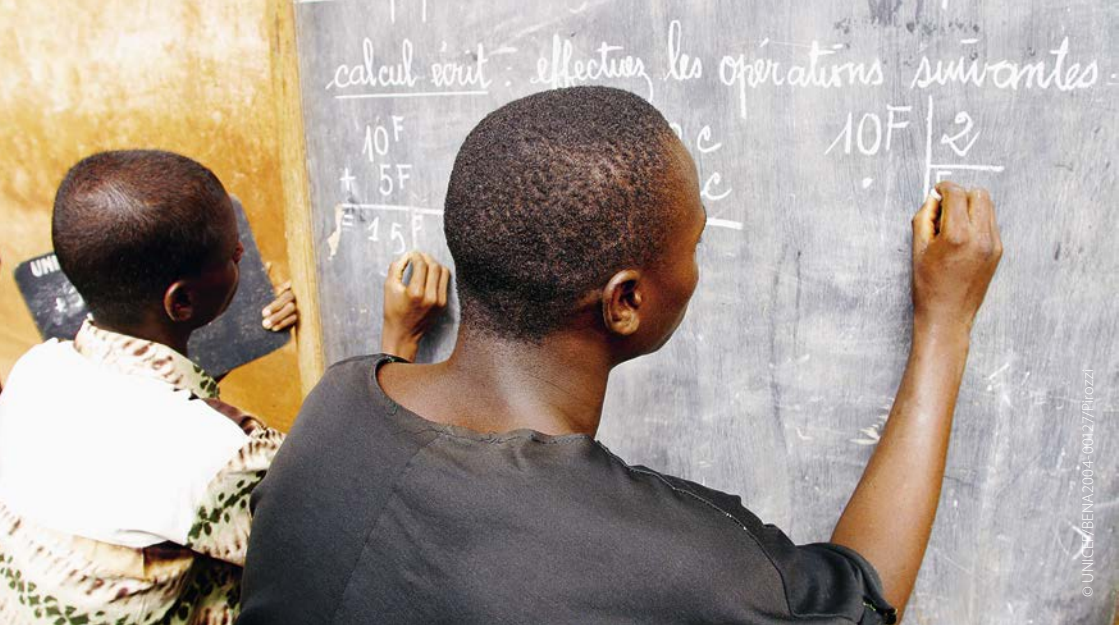 calcul écrit : effectuez les opérations suivantes
10F
+ 5F
= 15F
c
c
10F 2
© UNICEF/BENA2004-0012//Pirozzi